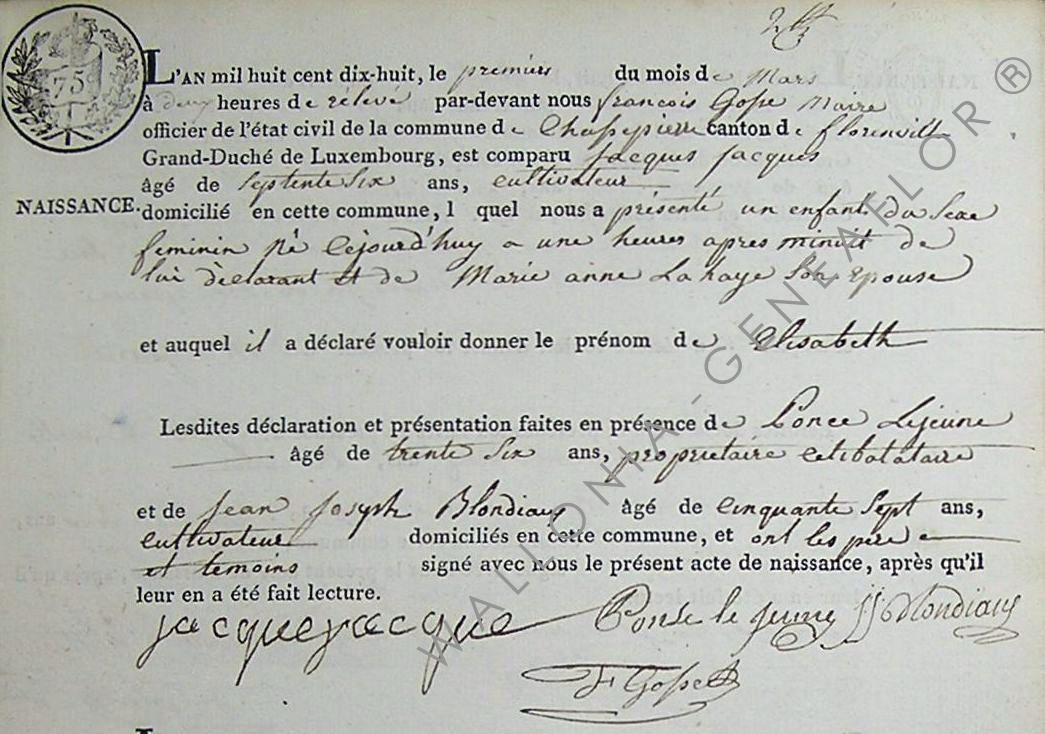 75
L'AN mil huit cent dix-huit, le premier du mois de Mars
à deux heures de rélevé par-devant nous francois Gofse Maire
officier de l'état civil de la commune de Chassepierre canton de florenville
Grand-Duché de Luxembourg, est comparu Jacques Jacques
âgé de septente six ans, cultivateur
NAISSANCE. domicilié en cette commune, l quel nous a présenté un enfant du sexe
feminin né cejourd'huy a une heures apres minuit de
lui déclarant et de Marie anne Lahaye son Epouse
et auquel il a déclaré vouloir donner le prénom de Elisabeth
Lesdites déclaration et présentation faites en présence de Ponce Lejeune
âgé de trente six ans, propriétaire
et de Jean Joseph Blondiaux âgé de cinquante sept ans,
cultivateur domiciliés en cette commune, et ont les père
et temoins signé avec nous le présent acte de naissance, après qu'il
leur en a été fait lecture.
jacque jacque Ponse le jeune JJ Blondiaux
F Gofse
WALLONIA GENEAFLOR ®